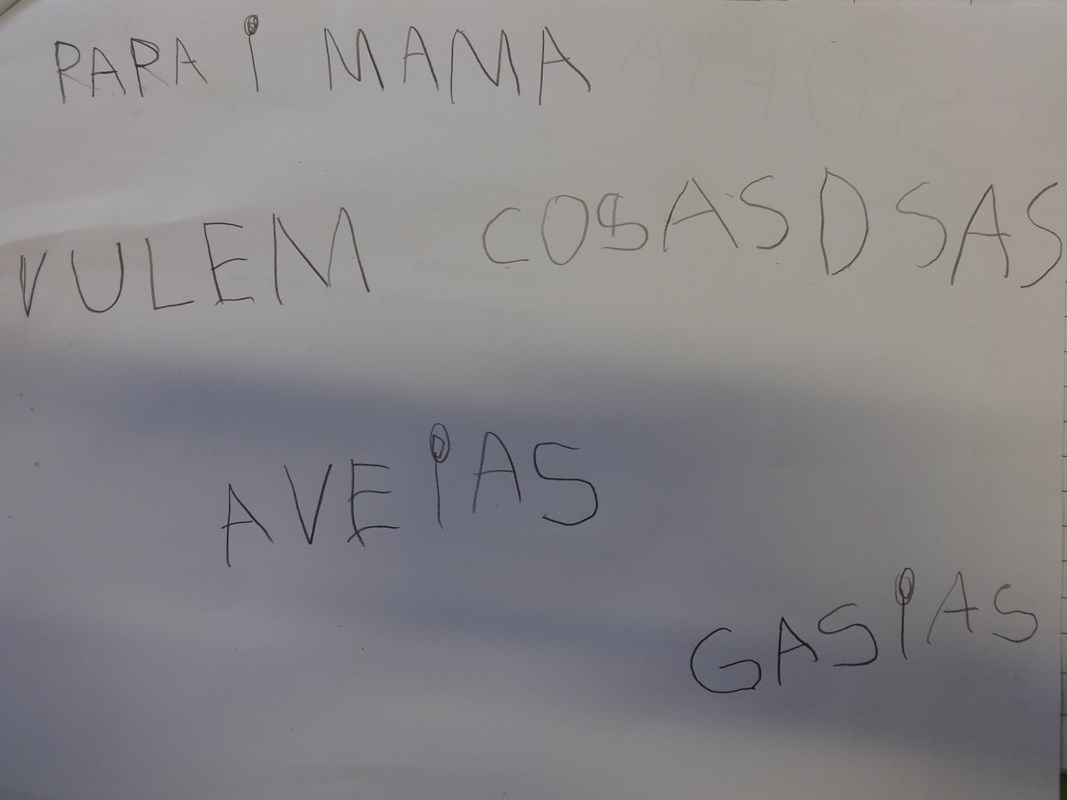 PAPA i MAMA
VULEM COSAS D SAS
AVEiAS
GASiAS